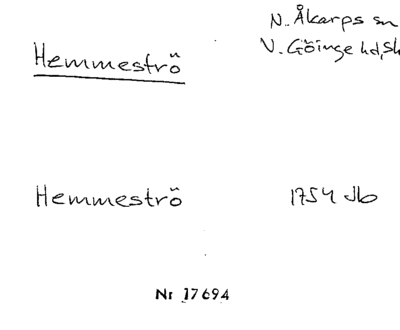 N. Åkarps sn
Hemmeströ
V. Göinge hd, Sk
Hemmeströ
1754 Jb
Nr 17694